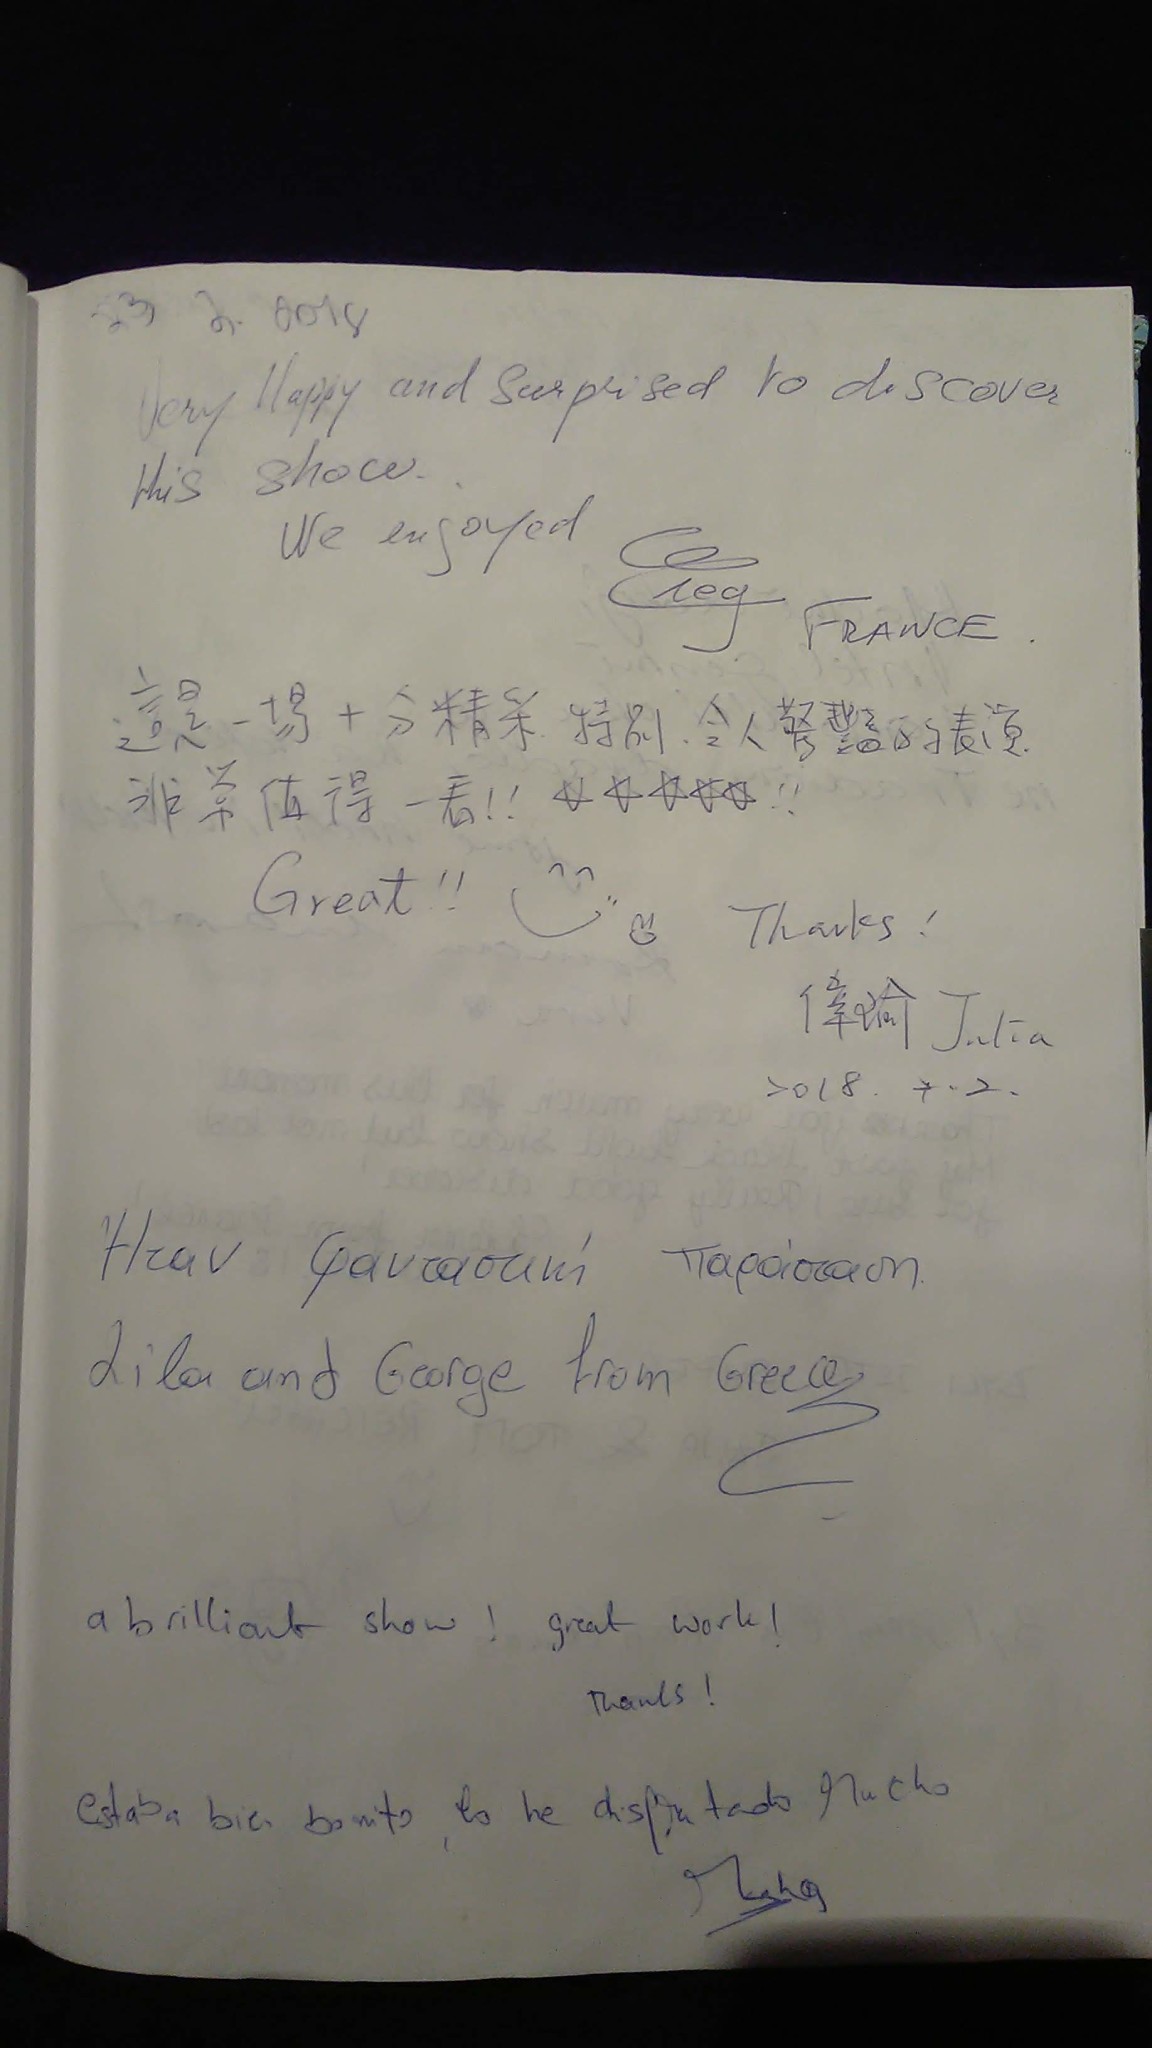 2018
Very Happy and Surprised to discover
this show.
We enjoyed
Greg
FRANCE.
這是一場十分精采、特別、令人驚豔的表演
非常值得一看!! ☆☆☆☆☆!!
Great!!
Thanks!
偉瑜 Julia
2018. 7. 2.
Ήταν φανταστική παράσταση.
Lila and George from Greece
a brilliant show! great work!
thanks!
estaba bien bonito, lo he disfrutado Mucho